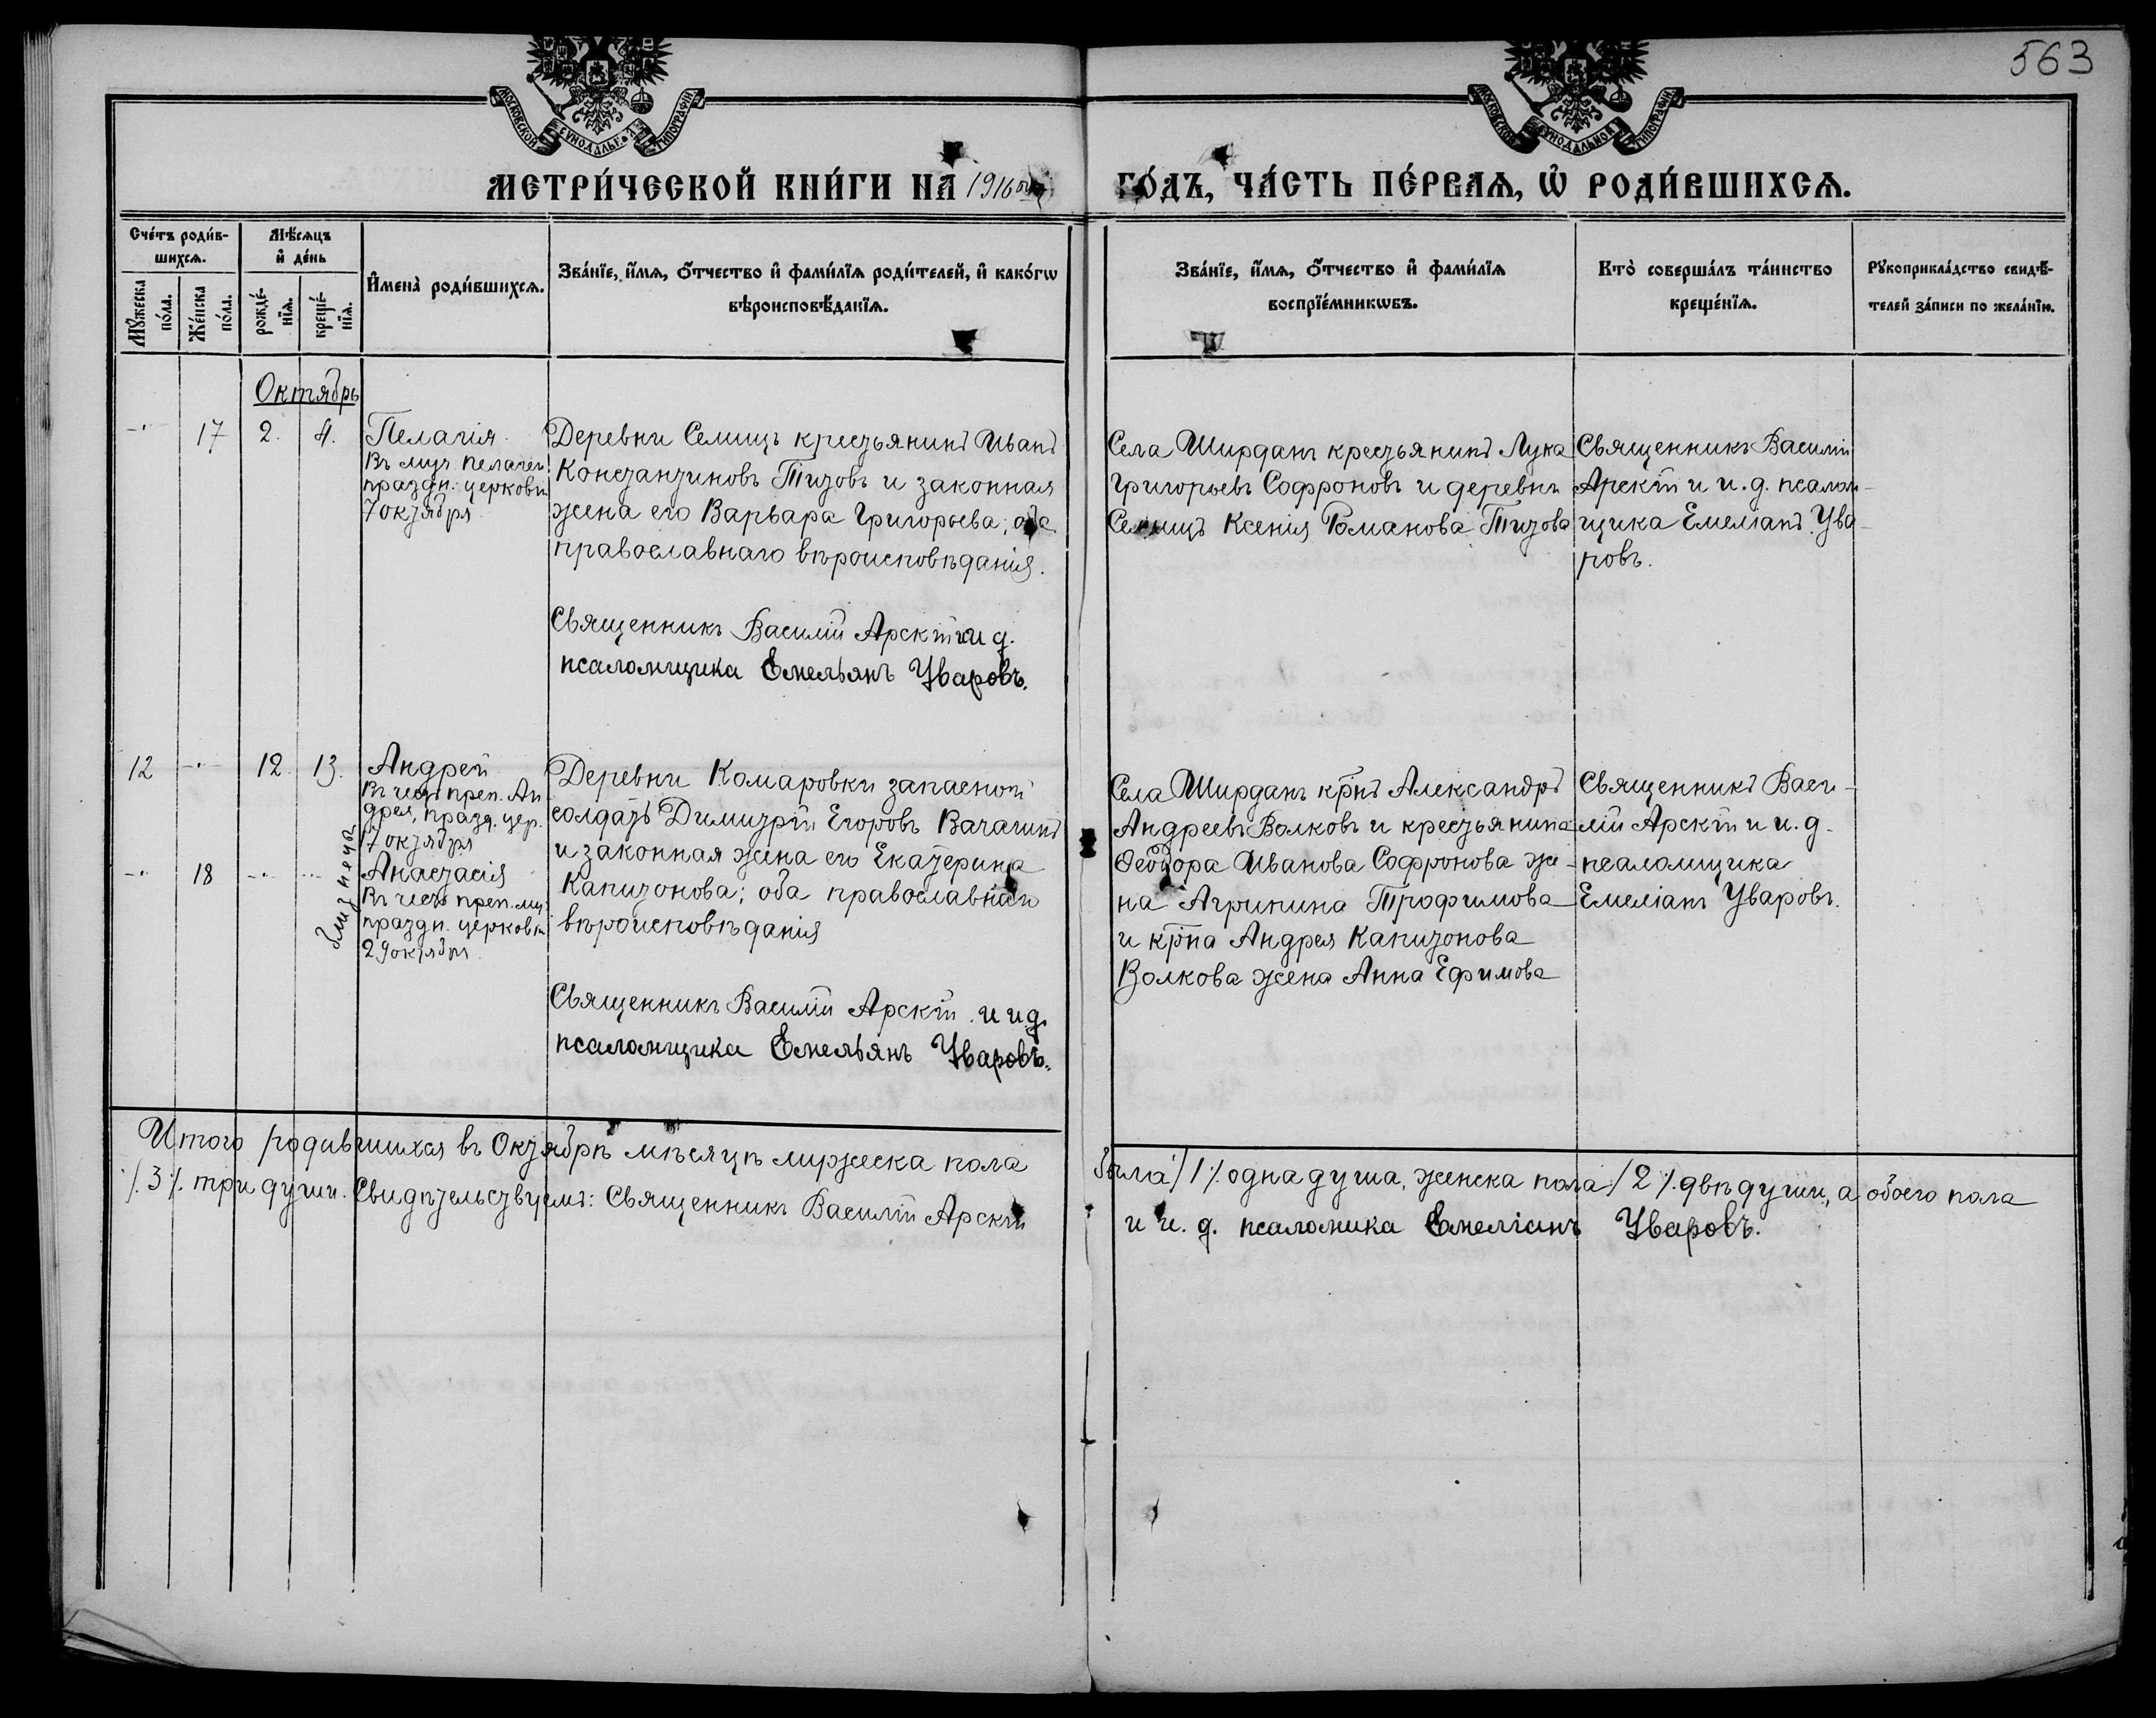 563
МОСКОВСКОЙ СѴНОДАЛЬНОЙ ТИПОГРАФІИ
МОСКОВСКОЙ СѴНОДАЛЬНОЙ ТИПОГРАФІИ
МЕТРИ́ЧЕСКОЙ КНИ́ГИ НА 1916
ГО́ДЪ, ЧА́СТЬ ПЕ́РВАЯ, Ѡ РОДИ́ВШИХСЯ.
Сче́тъ роди́в-
шихся.
Му́жеска
по́ла.
Же́нска
по́ла.
Мѣ́сяцъ
и де́нь
рожде́-
нїя.
креще́-
нїя.
Имена̀ роди́вшихся.
Зва́нїе, и́мя, о́тчество и фами́лїя роди́телей, и како́гѡ
вѣроисповѣ́данїя.
Зва́нїе, и́мя, о́тчество и фами́лїя
воспрїе́мникѡвъ.
Кто̀ соверша́лъ та́инство
креще́нїя.
Рꙋкоприкла́дство свидѣ́-
телей за́писи по жела́нїю.
Октябрь
17 2. 4.
Пелагія.
Въ муч. Пелагеи
праздн. церковью
7 октября
Деревни Селищъ крестьянинъ Иванъ
Константиновъ Тизовъ и законная
жена его Варвара Григорьева; оба
православнаго вѣроисповѣданія.
Священникъ Василій Арскій и и д.
псаломщика Емельянъ Уваровъ.
Села Ширданъ крестьянинъ Лука
Григорьевъ Софроновъ и деревни
Селищъ Ксенія Романова Тизова
Священникъ Василій
Арскій и и. д. псалом-
щика Емеліанъ Ува-
ровъ.
12 12. 13.
Андрей
Въ честь преп. Ан
дрея, празд. цер.
17 октября
близнецы
18
Анастасія
Въ честь преп. муч
праздн. церковью
29 октября
Деревни Комаровки запасной
солдатъ Димитрій Егоровъ Вачагинъ
и законная жена его Екатерина
Капитонова; оба православнаго
вѣроисповѣданія
Священникъ Василій Арскій. и и д.
псаломщика Емельянъ Уваровъ.
Села Ширданъ кр̃нъ Александръ
Андреевъ Волковъ и крестьянина
Ѳеодора Иванова Софронова же-
на Агрипина Трофимова
и кр̃на Андрея Капитонова
Волкова жена Анна Ефимова
Священникъ Васи-
лій Арскій и и. д.
псаломщика
Емеліанъ Уваровъ.
Итого родившихся въ Октябрѣ мѣсяцѣ мужеска пола
была /1/. одна душа, женска пола /2/. двѣ души, а обоего пола
/.3/. три души. Свидѣтельствуемъ: Священникъ Василій Арскій
и и. д. псаломика Емеліанъ Уваровъ.